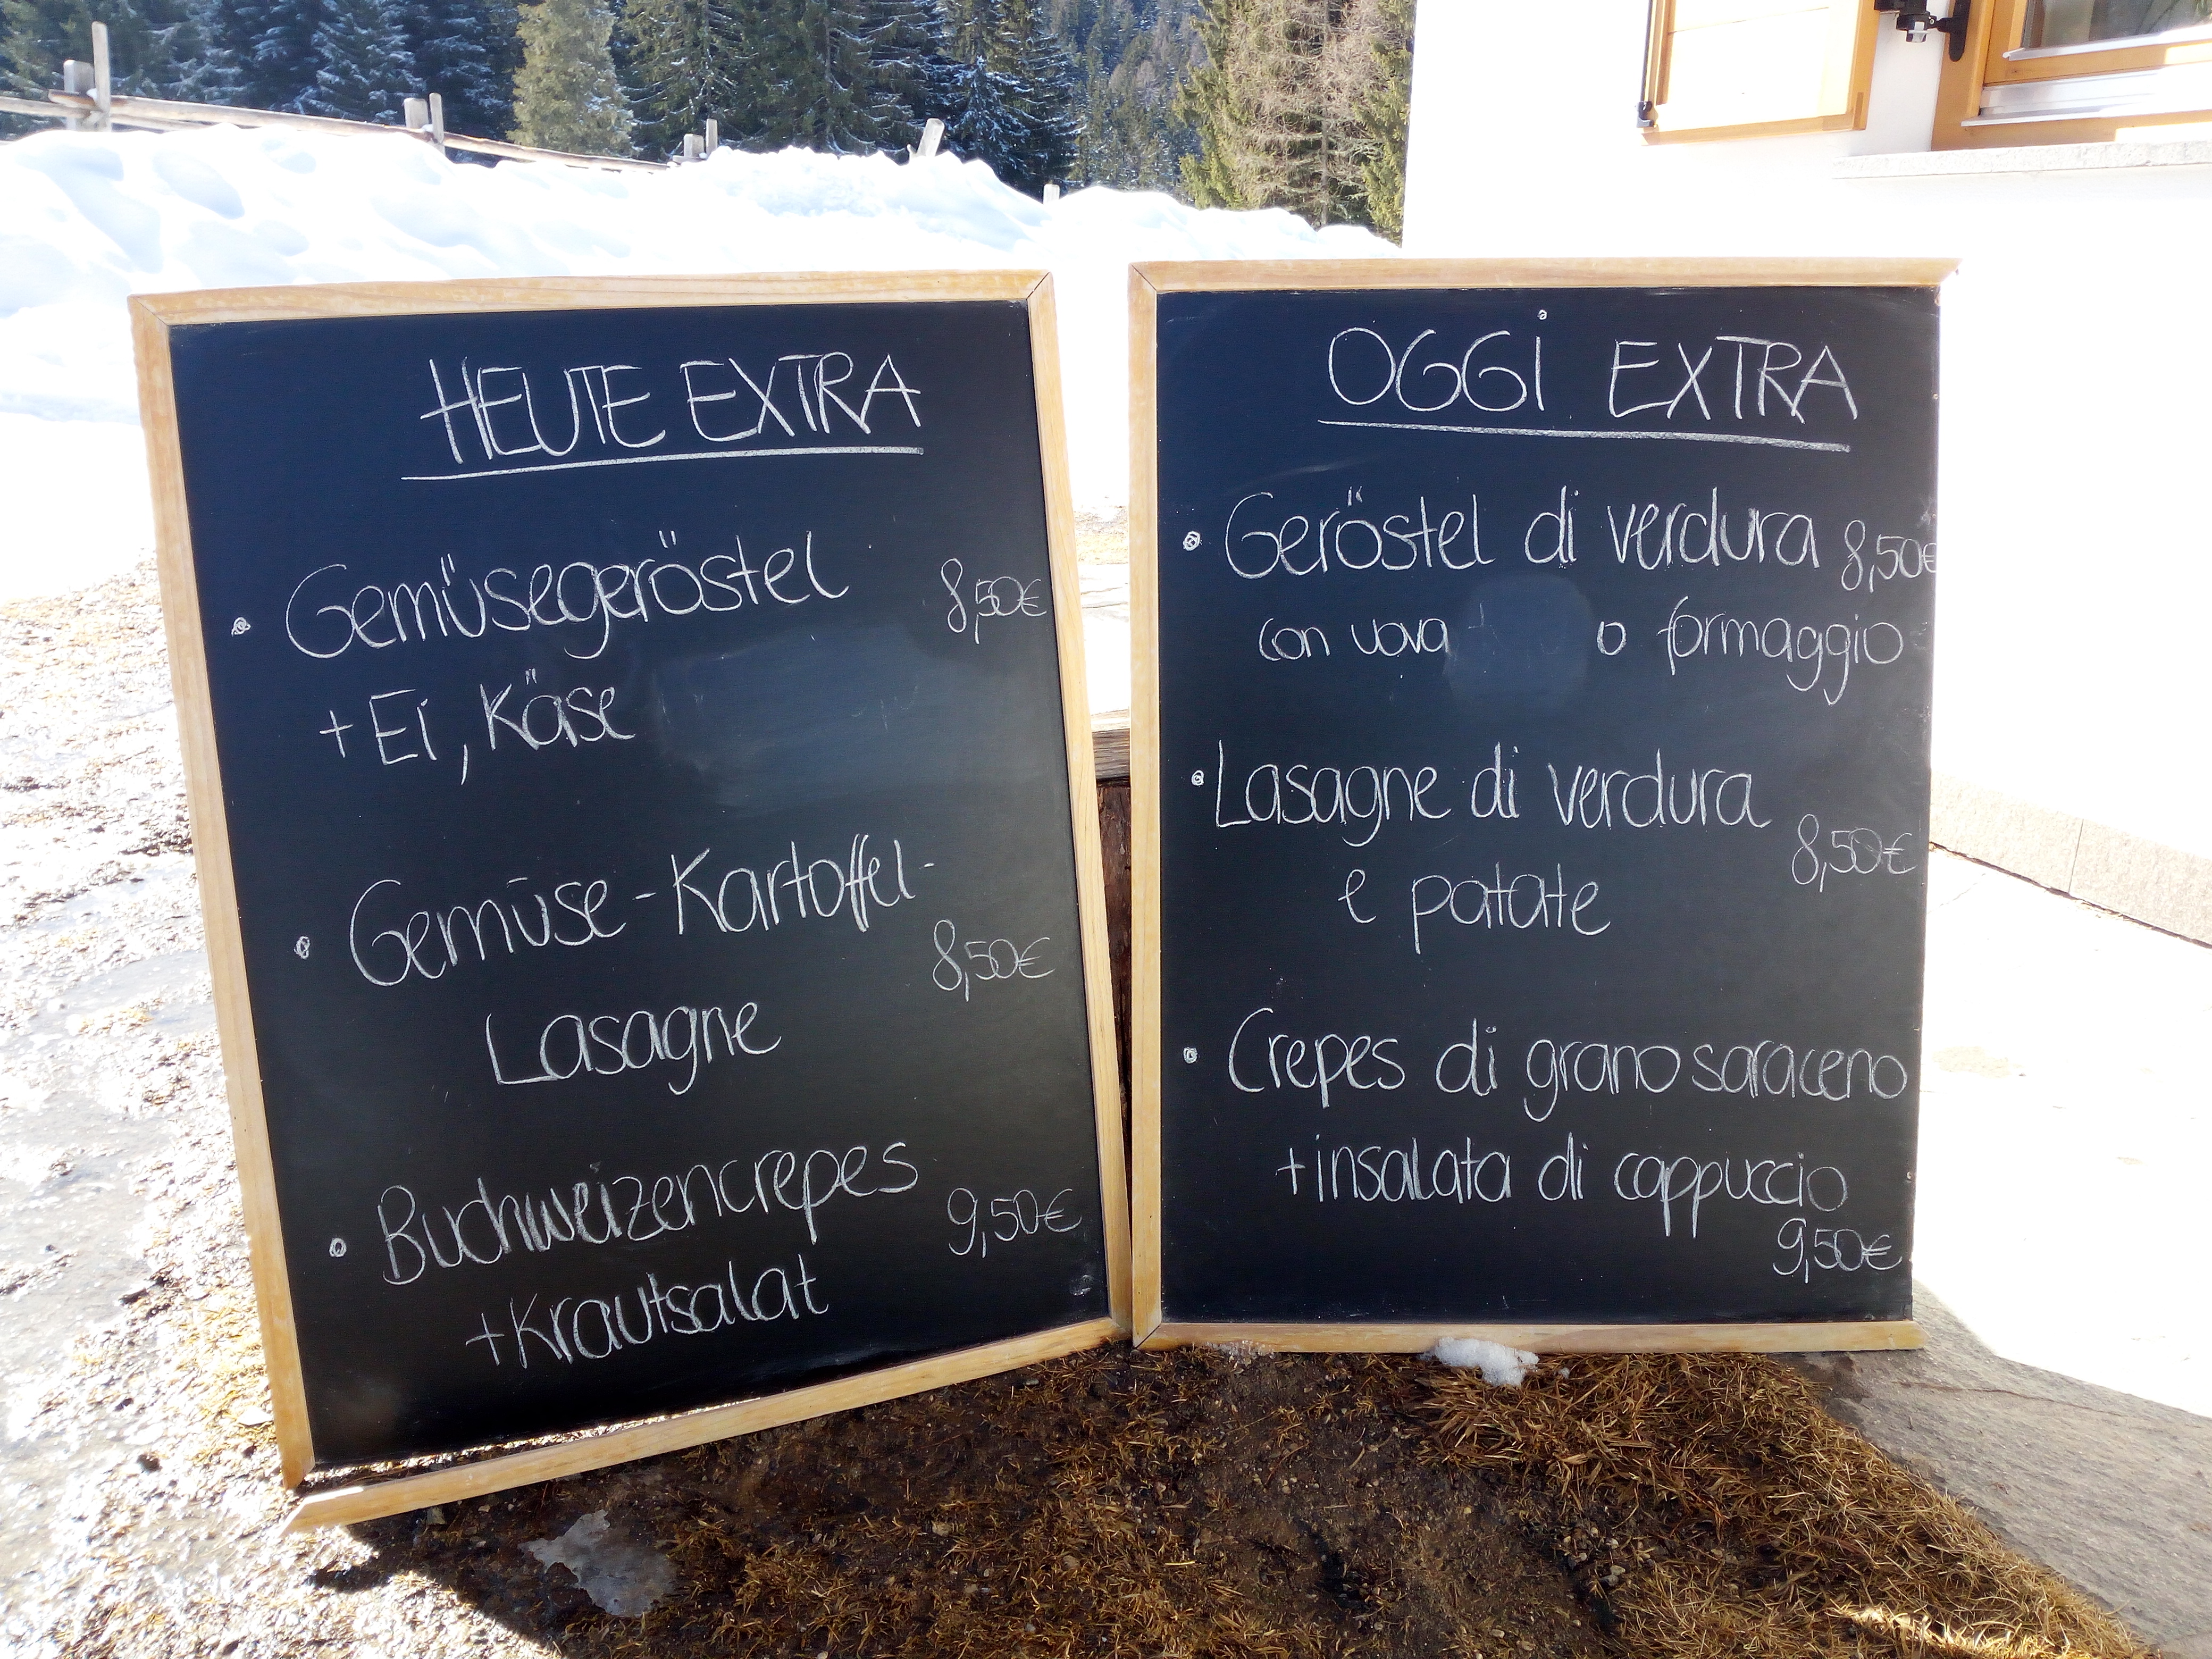 HEUTE EXTRA
• Gemüsegeröstel 8,50€
+ Ei, Käse
• Gemüse-Kartoffel-
8,50€
Lasagne
• Buchweizencrepes 9,50€
+Krautsalat
OGGi EXTRA
• Geröstel di verdura 8,50€
con uova o formaggio
• Lasagne di verdura
8,50€
e patate
• Crepes di grano saraceno
+insalata di cappuccio
9,50€